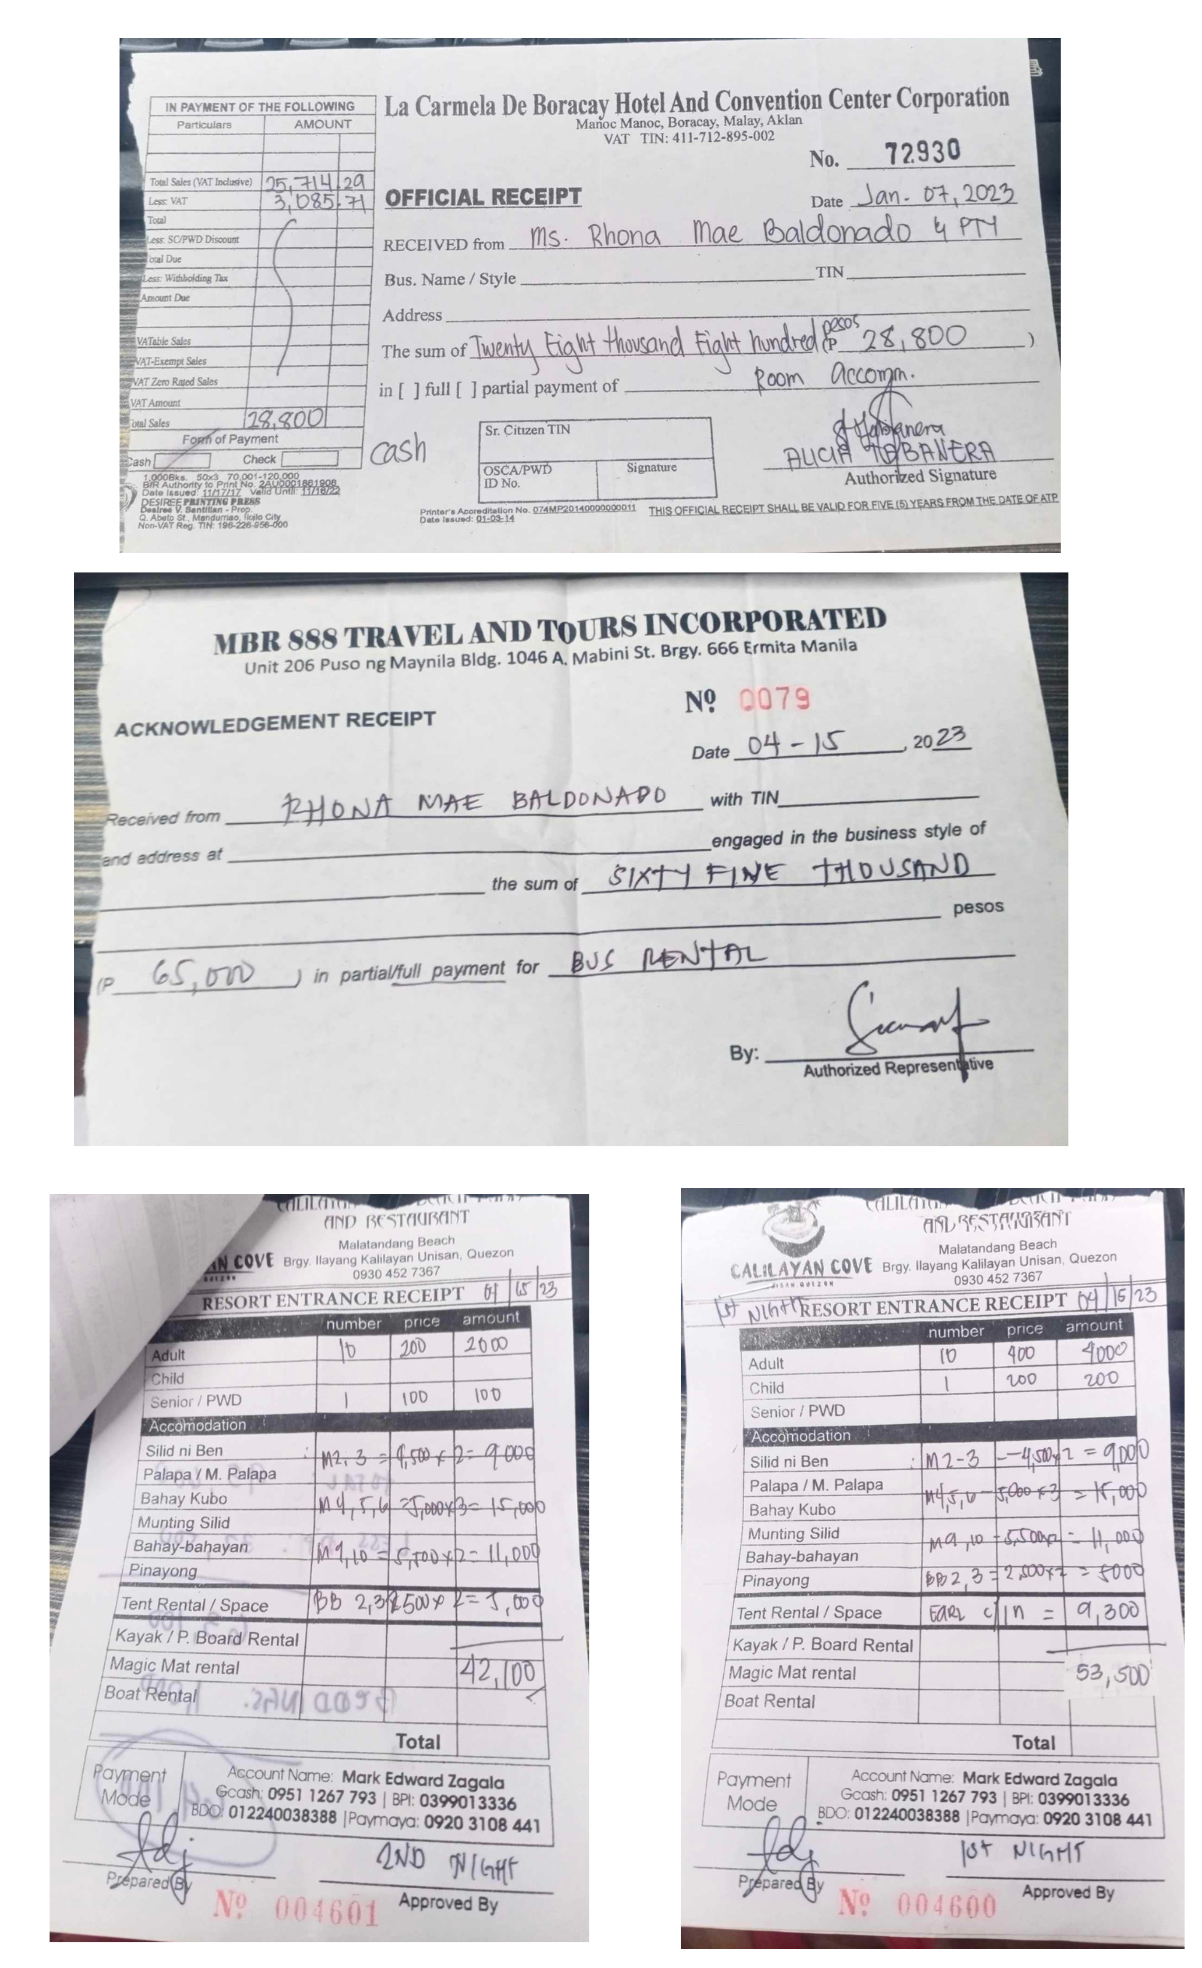 IN PAYMENT OF THE FOLLOWING
Particulars AMOUNT
Total Sales (VAT Inclusive) 25,714.29
Less: VAT 3,085.71
Total
Less: SC/PWD Discount
Total Due
Less: Withholding Tax
Amount Due
VATable Sales
VAT-Exempt Sales
VAT Zero Rated Sales
VAT Amount
Total Sales 28,800
Form of Payment
Cash Check
1,000Bks. 50x3 70,001-120,000
BIR Authority to Print No. 2AU0001861908
Date Issued: 11/17/17 Valid Until: 11/16/22
DESIREE PRINTING PRESS
Desiree V. Santillan - Prop.
Q. Abeto St., Mandurriao, Iloilo City
Non-VAT Reg. TIN: 196-226-956-000
La Carmela De Boracay Hotel And Convention Center Corporation
Manoc Manoc, Boracay, Malay, Aklan
VAT TIN: 411-712-895-002
No. 72930
OFFICIAL RECEIPT
Date Jan. 07, 2023
RECEIVED from Ms. Rhona Mae Baldonado & PTY
Bus. Name / Style TIN
Address
The sum of Twenty Eight thousand Eight hundred pesos (P 28,800 )
in [ ] full [ ] partial payment of Room accomm.
cash
Sr. Citizen TIN
OSCA/PWD ID No.
Signature
ALICIA TABANERA
Authorized Signature
Printer's Accreditation No. 074MP20140000000011
Date Issued: 01-03-14
THIS OFFICIAL RECEIPT SHALL BE VALID FOR FIVE (5) YEARS FROM THE DATE OF ATP
MBR 888 TRAVEL AND TOURS INCORPORATED
Unit 206 Puso ng Maynila Bldg. 1046 A. Mabini St. Brgy. 666 Ermita Manila
Nº 0079
ACKNOWLEDGEMENT RECEIPT
Date 04-15, 2023
Received from RHONA MAE BALDONADO with TIN
and address at engaged in the business style of
the sum of SIXTY FINE THOUSAND
pesos
(P 65,000 ) in partial/full payment for BUS RENTAL
By:
Authorized Representative
AND RESTAURANT
Malatandang Beach
AN COVE Brgy. Ilayang Kalilayan Unisan, Quezon
0930 452 7367
RESORT ENTRANCE RECEIPT 01/15/23
number price amount
Adult 10 200 2000
Child
Senior / PWD 1 100 100
Accomodation
Silid ni Ben M2, 3 = 4,500 x 2 = 9,000
Palapa / M. Palapa
Bahay Kubo M4, 5, 6 = 5,000 x 3 = 15,000
Munting Silid
Bahay-bahayan M9, 10 = 5,500 x 2 = 11,000
Pinayong
Tent Rental / Space BB 2, 3 2500 x 2 = 5,000
Kayak / P. Board Rental
Magic Mat rental 42,100
Boat Rental
Total
Payment Mode
Account Name: Mark Edward Zagala
Gcash: 0951 1267 793 | BPI: 0399013336
BDO: 012240038388 |Paymaya: 0920 3108 441
2ND NIGHT
Prepared By Approved By
Nº 004601
AND RESTAURANT
Malatandang Beach
CALILAYAN COVE Brgy. Ilayang Kalilayan Unisan, Quezon
0930 452 7367
1st NIGHT RESORT ENTRANCE RECEIPT 04/15/23
number price amount
Adult 10 400 4000
Child 1 200 200
Senior / PWD
Accomodation
Silid ni Ben M2-3 - 4,500x2 = 9,000
Palapa / M. Palapa
Bahay Kubo M4,5,6 - 5,000 x 3 = 15,000
Munting Silid
Bahay-bahayan M9,10 - 5,500x2 = 11,000
Pinayong BB2,3 = 2,500x2 = 5000
Tent Rental / Space EARL c/in = 9,300
Kayak / P. Board Rental
Magic Mat rental 53,500
Boat Rental
Total
Payment Mode
Account Name: Mark Edward Zagala
Gcash: 0951 1267 793 | BPI: 0399013336
BDO: 012240038388 |Paymaya: 0920 3108 441
1st NIGHT
Prepared By Approved By
Nº 004600